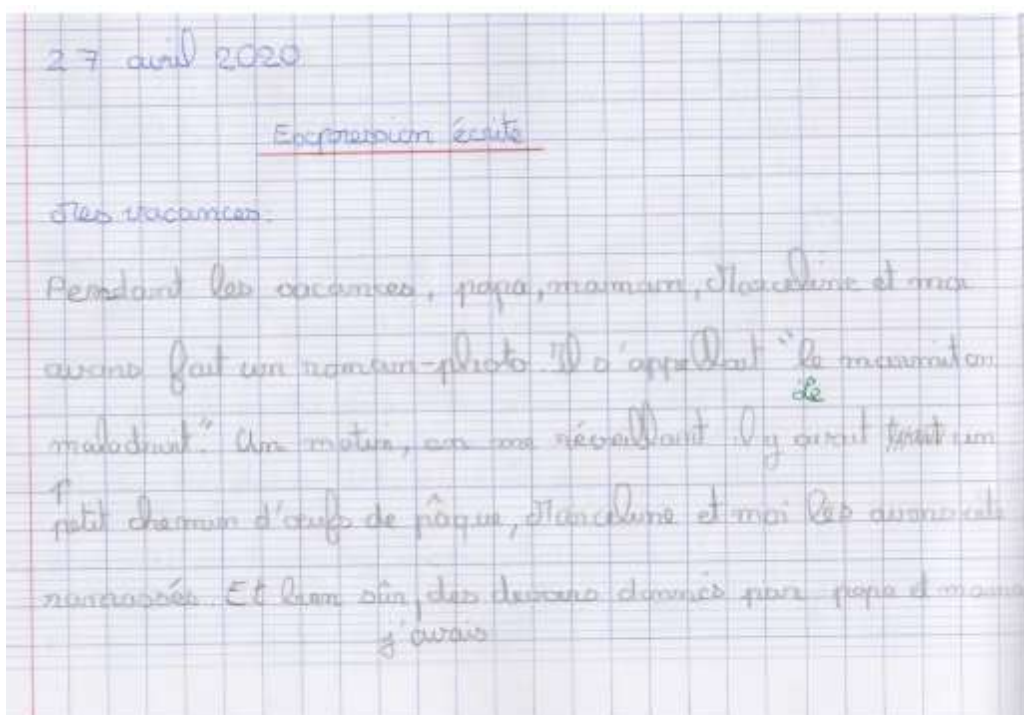 27 avril 2020
Expression écrite
Mes vacances.
Pendant les vacances, papa, maman, Marceline et moi
avons fait un roman-photo. Il s'appellait "le marmiton
de
maladroit". Un matin, en me réveillant il y avait tout un
petit chemin d'œufs de pâque, Marceline et moi les avons
ramassés. Et bien sûr, des devoirs donnés par papa et maman
j'avais